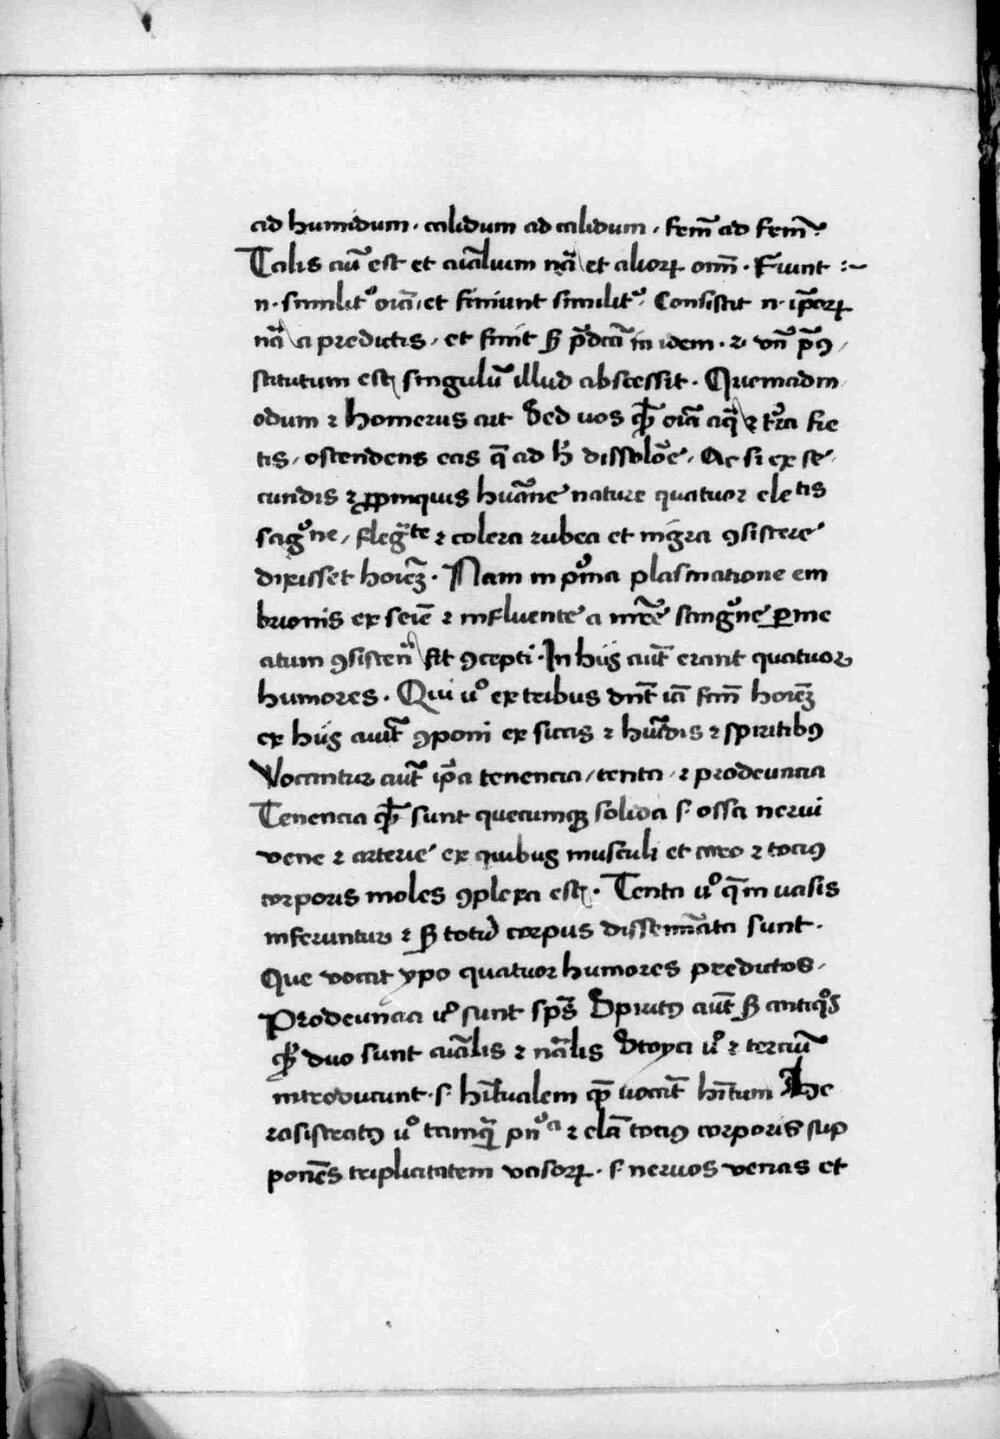 ad humidum · calidum ad calidum · fem̄ ad fem̄ ·
Talis aūt est et aīalium nā et alioꝝ om̄ · Fiunt :~
n · similitᵒ oīa et finiunt similitᵒ · Consistit n · ip̄oꝝ
nā a predictis · et finit ẜ p̄dcā in idem · ⁊ vn̄ p̄ꝰ
stitutum est singulū illud abscessit · Quemadm
odum ⁊ Homerus ait Sed uos qͩ oīa aqᷓ ⁊ tr̄a fie
tis / ostendens eas q̄ ad h̄ dissolōe · Ac si ex se
cundis ⁊ ꝓpinquis hūane nature quatuor eletis
sagᵒne / flegᷓte ⁊ colera rubea et nigra ꝯsistere
dixisset hoīeꝫ · Nam in pͥma plasmatione em
brionis ex seīe ⁊ influente a mr̄e sangᵒne ꝑme
atum ꝯsistenᷓ fit ꝯcepti · In hijs aūt erant quatuor
humores · Qui uᵒ ex tribus dn̄t iā fīm hoīeꝫ
ex hijs aiūt ꝯponi ex siccis ⁊ hūidis ⁊ spiritibꝰ
Vocantur aūt ip̄a tenencia / tenta · ⁊ prodeuncia
Tenencia qͩ sunt quecumqꝫ solida s · ossa nerui
vene ⁊ arterie ex quibus musculi et caro ⁊ tociꝰ
corporis moles ꝯplexa est · Tenta uᵒ q̄ in uasis
inferuntur ⁊ ẜ totū corpus disseīata sunt ·
Que vocat ypo quatuor humores predictos ·
Prodeuncia uᵒ sunt sp̄s Spiritꝰ aūt ẜ antiqᵒs
qͩ duo sunt aīalis ⁊ nālis Stoyci uᵒ ⁊ terciū
introducunt · s · hītualem qͩ uocāt hītum He
rasistratꝰ uᵒ tamqᷓ pnᵒa ⁊ elā tociꝰ corporis sup
ponēs triplicitatem vasoꝝ · s · neruos venas et